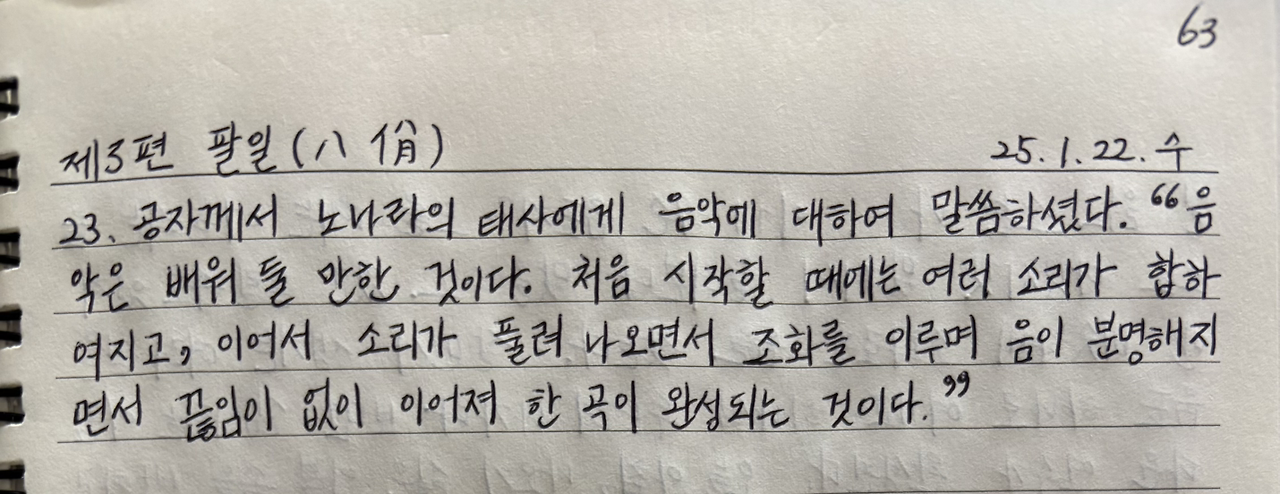 63
제3편 팔일(八佾) 25.1.22.수
23. 공자께서 노나라의 태사에게 음악에 대하여 말씀하셨다. “음
악은 배워 둘 만한 것이다. 처음 시작할 때에는 여러 소리가 합하
여지고, 이어서 소리가 풀려 나오면서 조화를 이루며 음이 분명해지
면서 끊임이 없이 이어져 한 곡이 완성되는 것이다.”